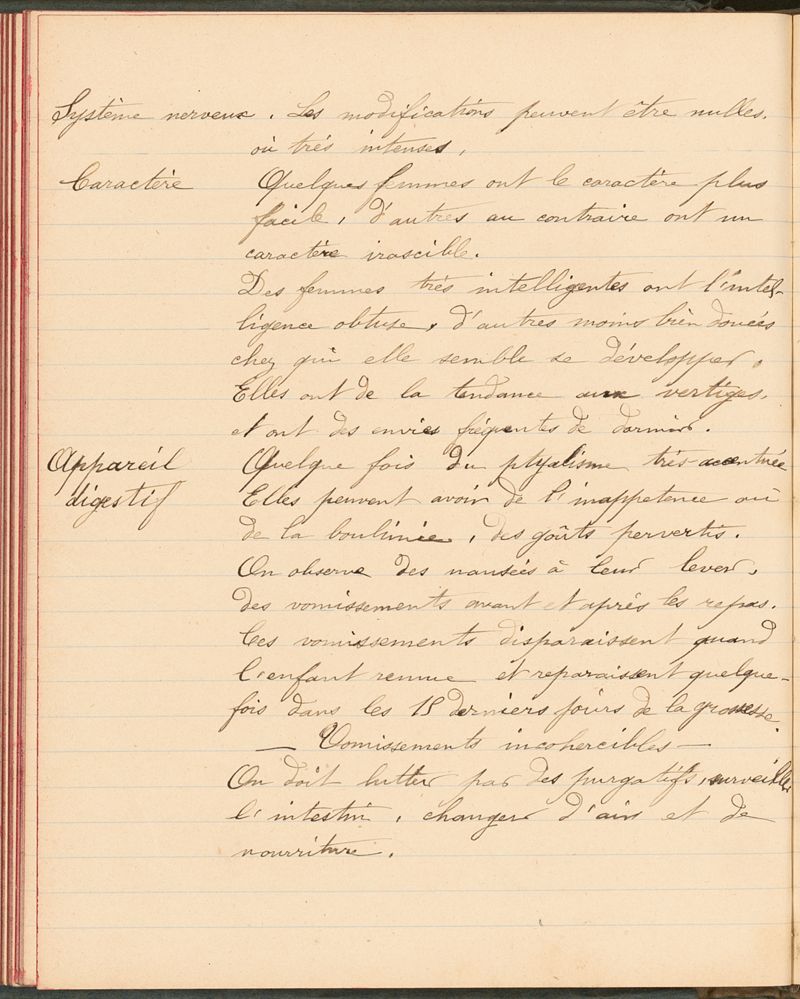 Système nerveux. Les modifications peuvent être nulles.
où très intenses,
Caractère Quelques femmes ont le caractère plus
facile, d'autres au contraire ont un
caractère irascible.
Des femmes très intelligentes ont l'intel-
ligence obtuse, d'autres moins bien douées
chez qui elle semble se développer.
Elles ont de la tendance aux vertiges,
et ont des envies fréquents de dormir.
Appareil Quelque fois du ptyalisme très accentuée
digestif Elles peuvent avoir de l'inappetence où
de la boulimie, des goûts pervertis.
On observe des nausées à leur lever,
des vomissements avant et après les repas.
Ces vomissements disparaissent quand
l'enfant remue et reparaissent quelque-
fois dans les 15 derniers jours de la grossesse.
— Vomissements incohercibles —
On doit lutter par des purgatifs, surveiller
l'intestin, changer d'air et de
nourriture.